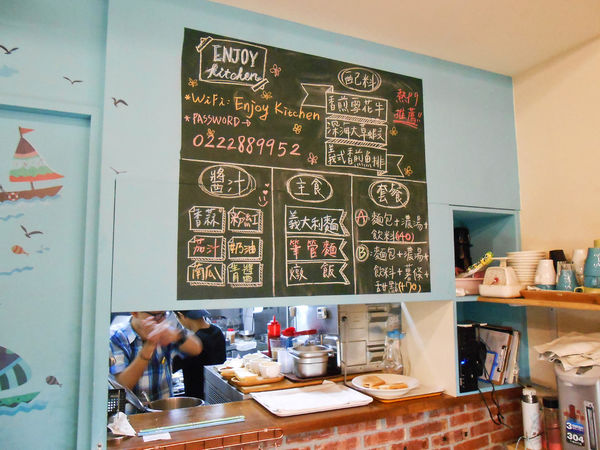 ENJOY
kitchen
*WiFi: Enjoy Kitchen
*PASSWORD→
0222889952
配料
熱門
推薦!!
香煎雪花牛
深海大草蝦
義式香煎魚排
醬汁
香蒜
粉紅
茄汁
奶油
南瓜
青醬
主食
義大利麵
筆管麵
燉飯
套餐
A 麵包+濃湯+
飲料(+40)
B 麵包+濃湯+
飲料+薯條+
甜點(+70)
304